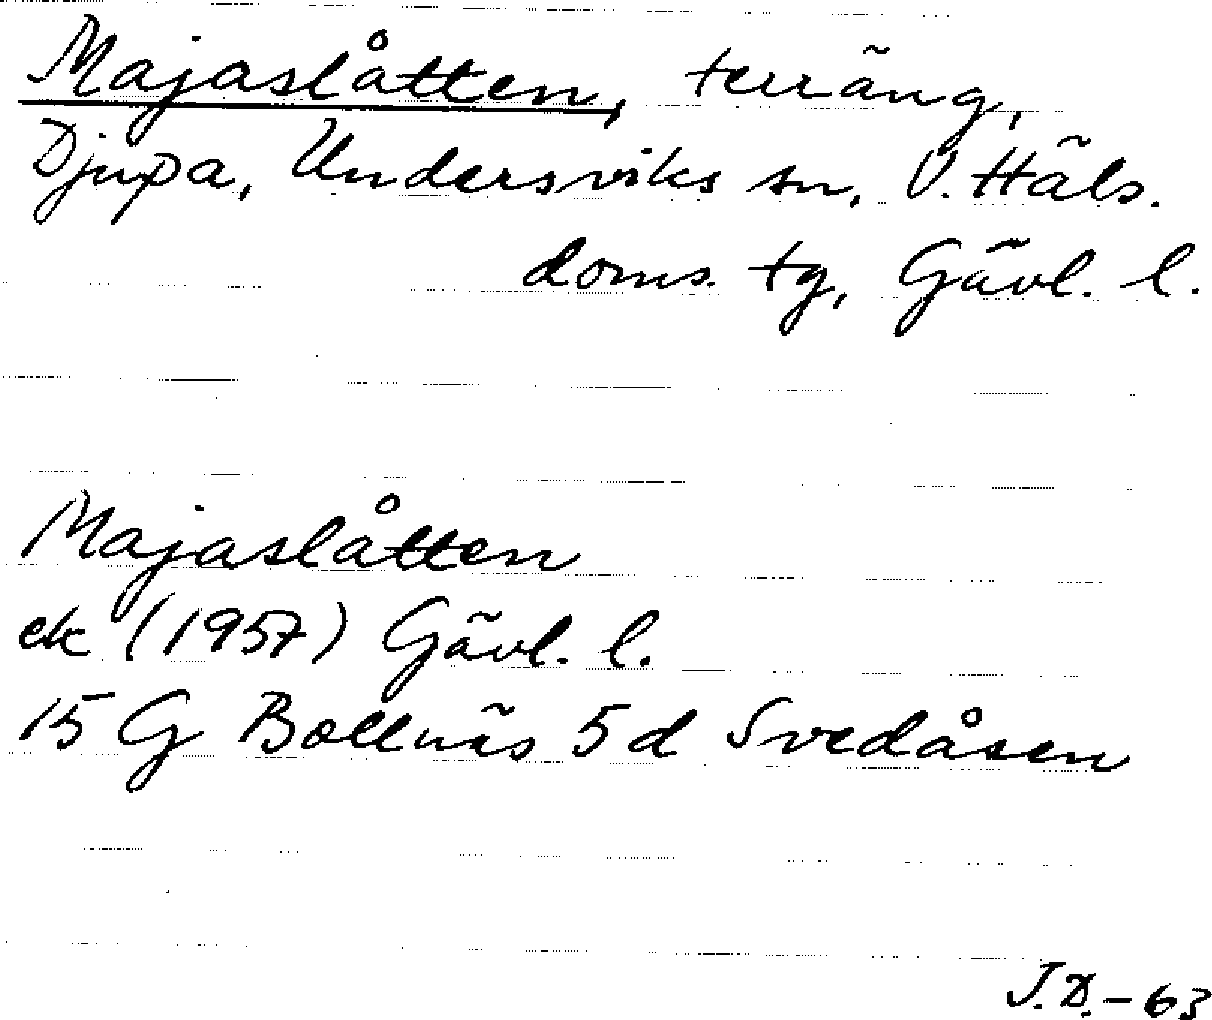 Majaslåtten, terräng,
Djupa, Undersviks sn, V. Häls.
doms. tg, Gävl. l.
Majaslåtten
ek (1957) Gävl. l.
15 G Bollnäs 5 d Svedåsen
J.D. - 63